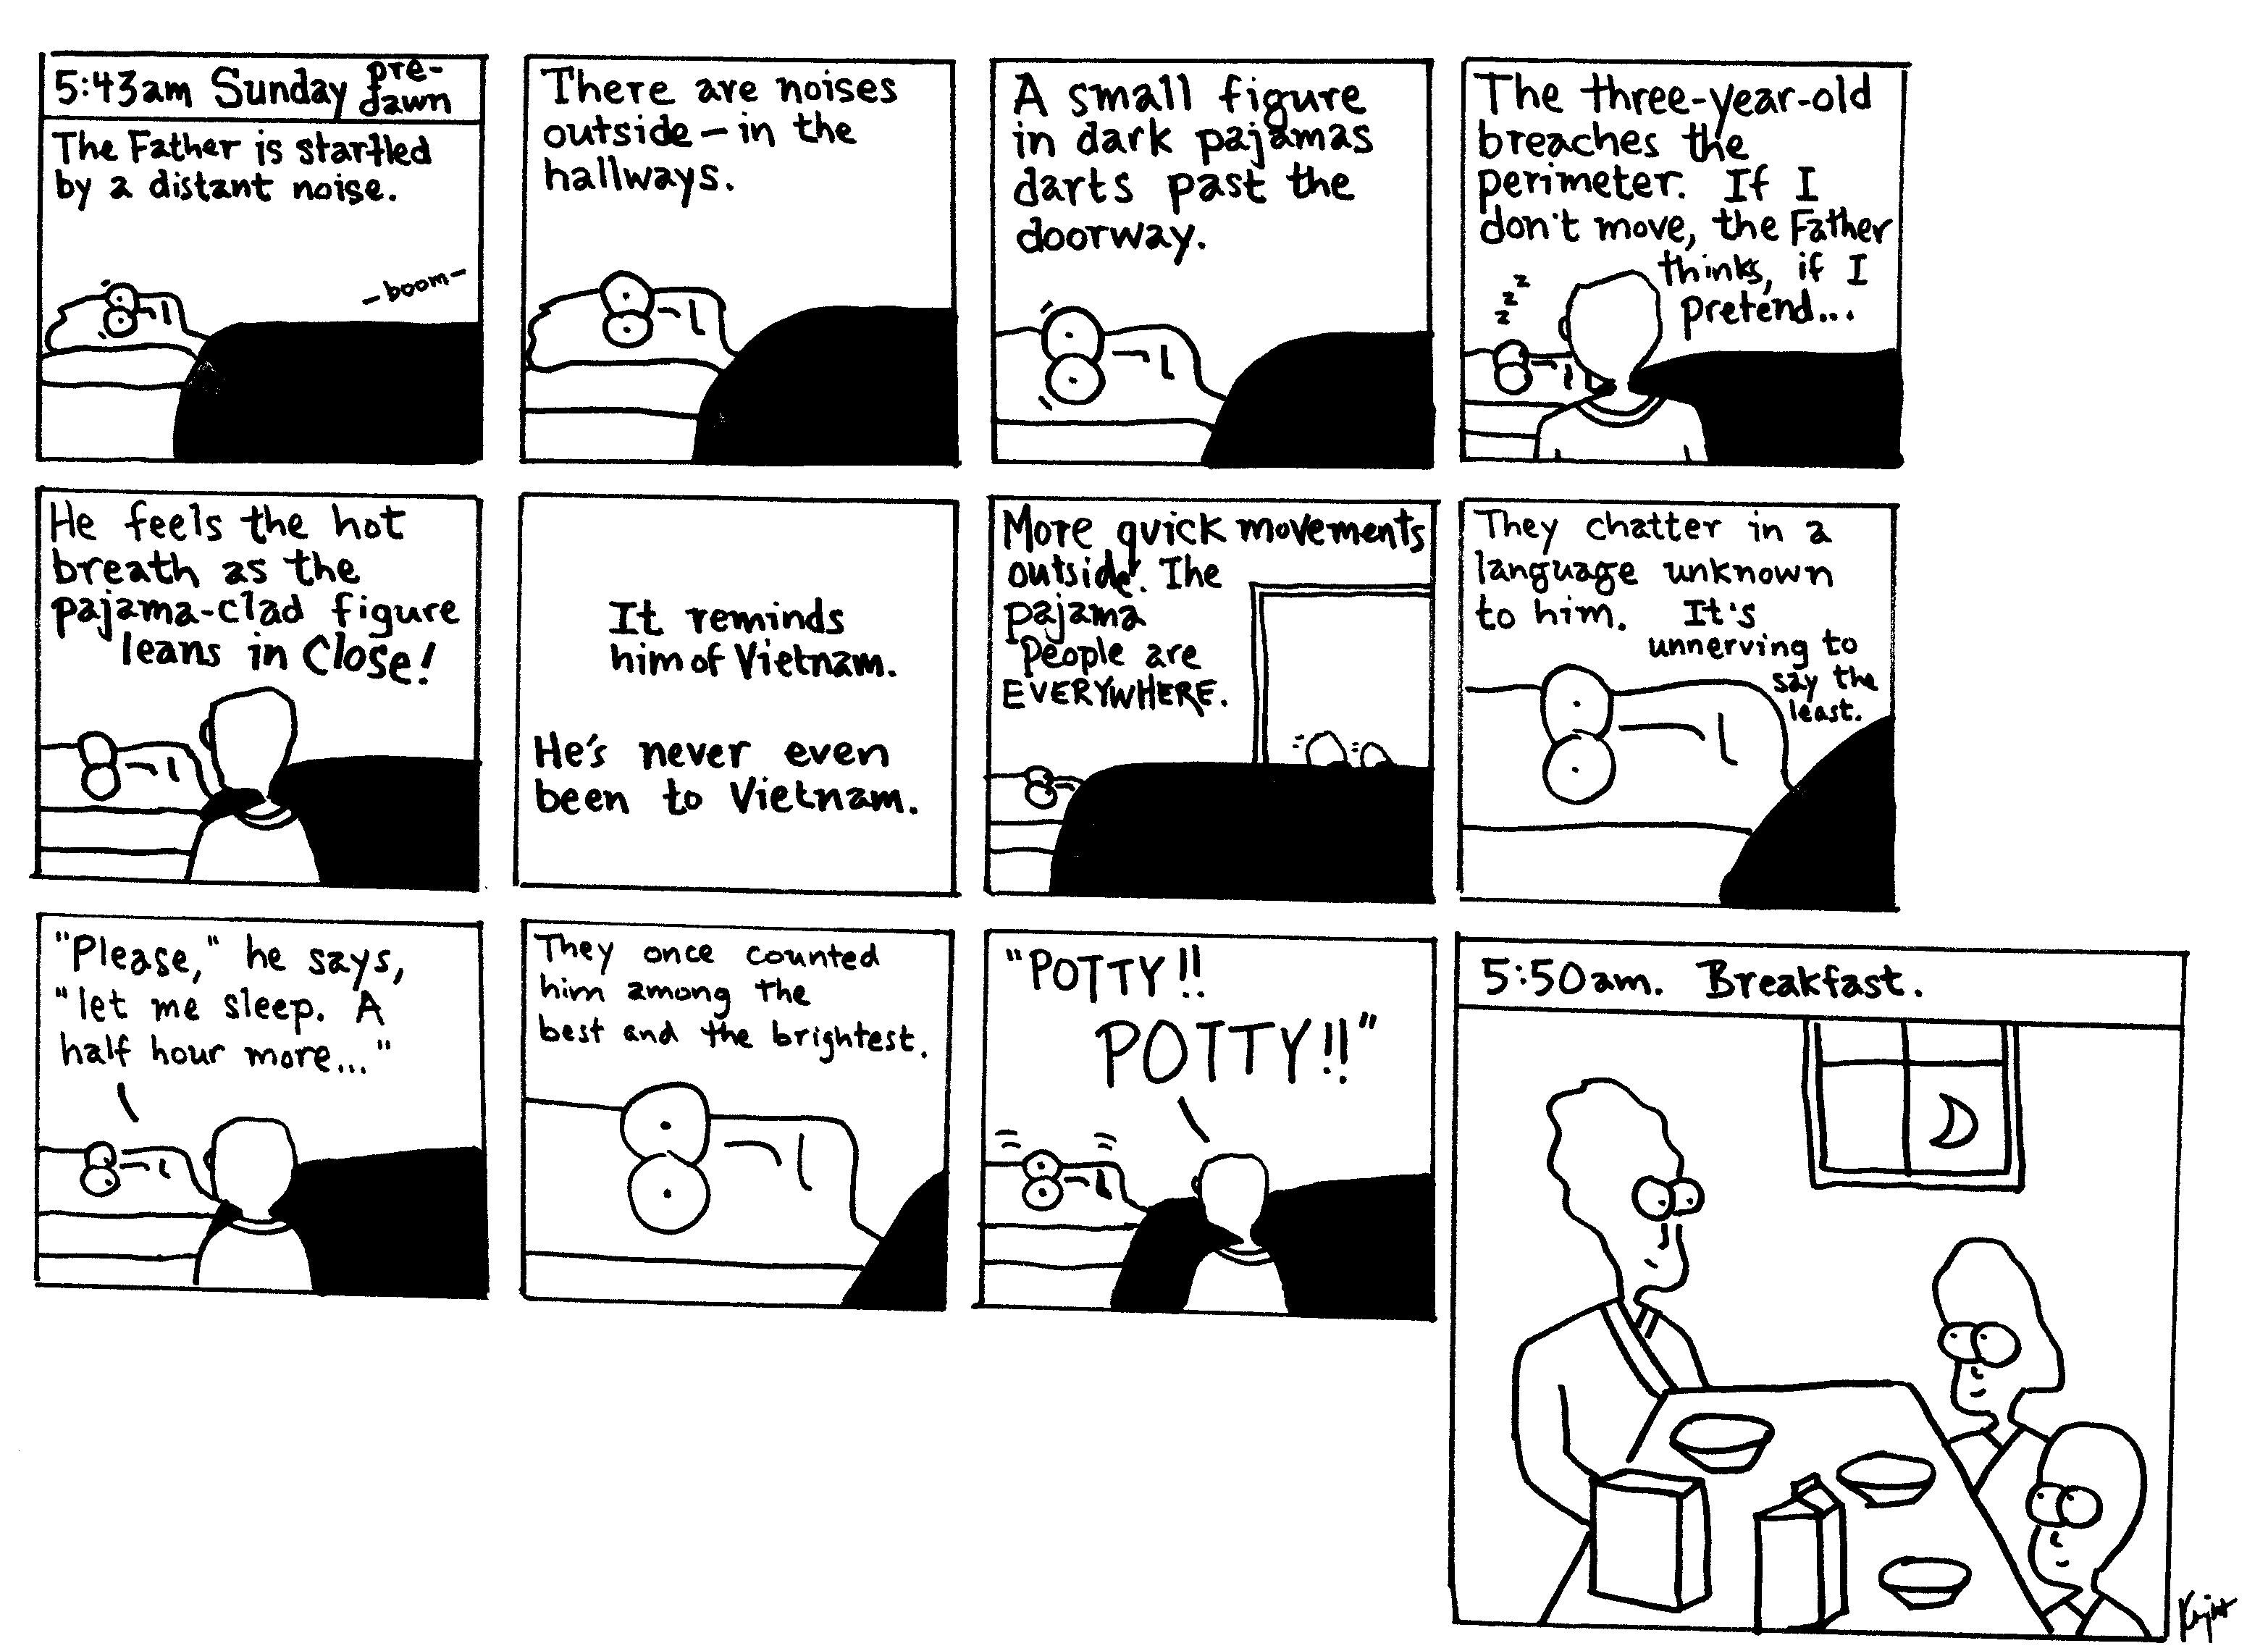 5:43am Sunday pre-
dawn
The Father is startled
by a distant noise.
-boom-
There are noises
outside - in the
hallways.
A small figure
in dark pajamas
darts past the
doorway.
The three-year-old
breaches the
perimeter. If I
don't move, the Father
thinks, if I
pretend...
z
z
z
He feels the hot
breath as the
pajama-clad figure
leans in Close!
It reminds
him of Vietnam.
He's never even
been to Vietnam.
More quick movements
outside. The
pajama
People are
EVERYWHERE.
They chatter in a
language unknown
to him. It's
unnerving to
say the
least.
"Please," he says,
"let me sleep. A
half hour more..."
They once counted
him among the
best and the brightest.
"POTTY!!
POTTY!!"
5:50am. Breakfast.